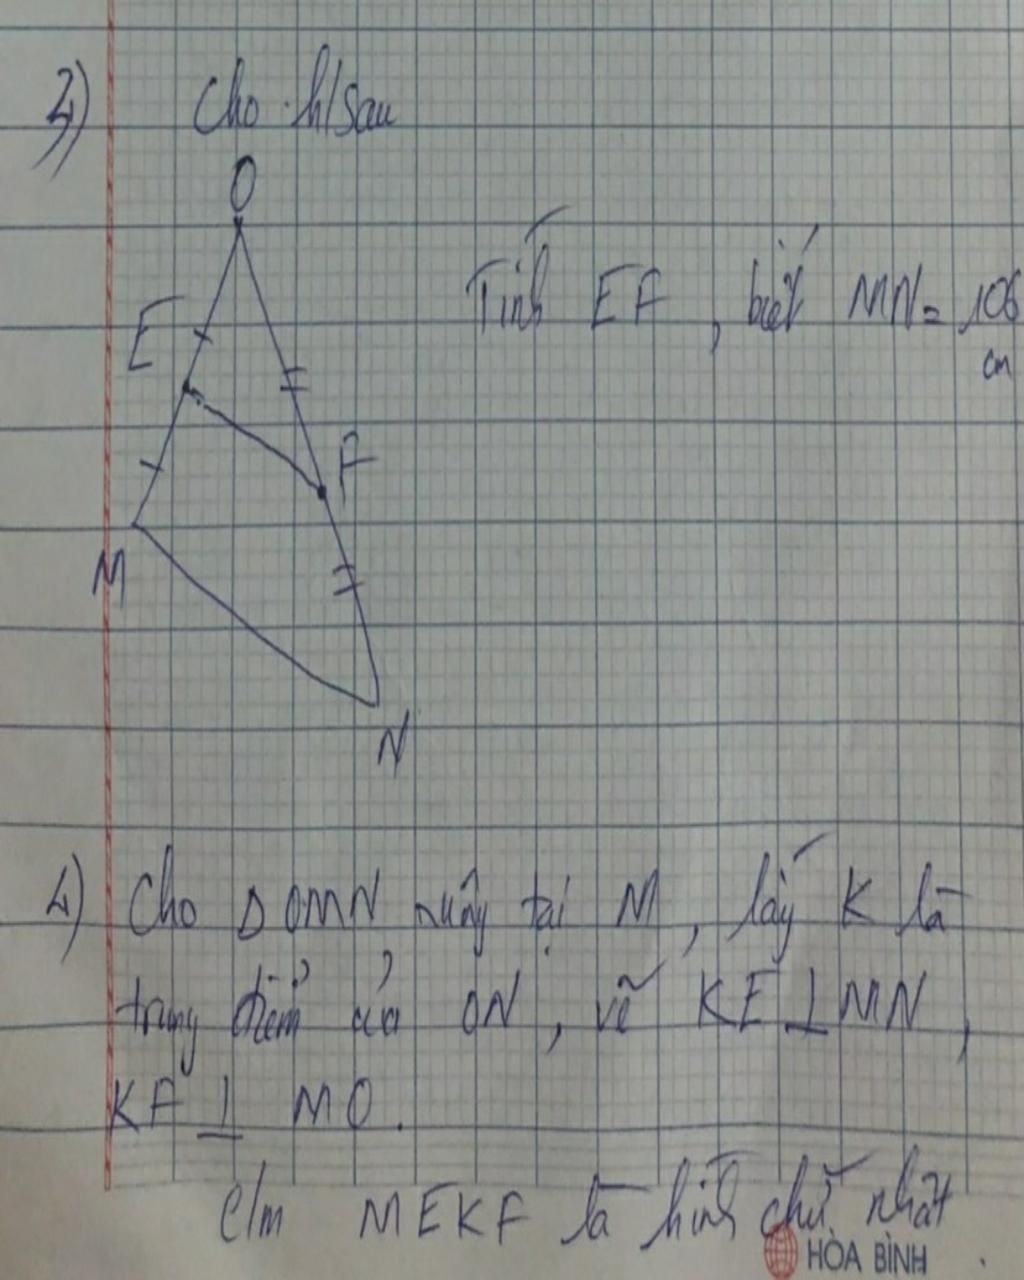 3) Cho h/sau
O
Tính EF, biết MN = 106
cm
E
F
M
N
4) Cho Δ OMN vuông tại M, lấy K là
trung điểm của ON, vẽ KE ⊥ MN,
KF ⊥ MO.
c/m MEKF là hình chữ nhật
HÒA BÌNH